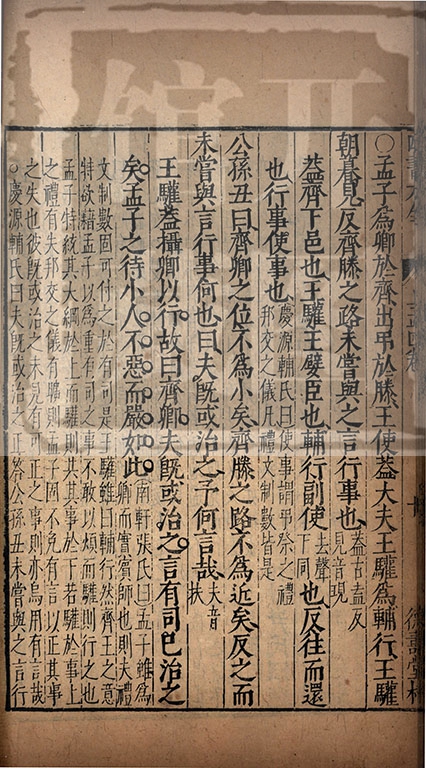 ○孟子為卿於齊出弔於滕王使蓋大夫王驩為輔行王驩
朝暮見反齊滕之路未嘗與之言行事也
蓋古盍反
見音現
蓋齊下邑也王驩王嬖臣也輔行副使
去聲
下同
也反往而還
也行事使事也
慶源輔氏曰使事謂弔祭之禮
邦交之儀凡禮文制數皆是
公孫丑曰齊卿之位不為小矣齊滕之路不為近矣反之而
未嘗與言行事何也曰夫旣或治之予何言哉
夫音
扶
王驩蓋攝卿以行故曰齊卿夫旣或治之言有司已治之
矣孟子之待小人不惡而嚴如此
南軒張氏曰孟子雖為
卿而實賓師也則夫禮
文制數固可付之於有司是王驩雖曰輔行然齊王之意
特欲藉孟子以為重有司之事不敢以煩而驩則行之也
孟子特統其大綱於上而驩則共其事於下若驩於事上
之禮有失邦交之儀有闕則孟子固不免有言以正其事
之失也彼旣或治之未見有可正之事則亦烏用有言哉
○慶源輔氏曰夫旣或治之正答公孫丑未嘗與之言行